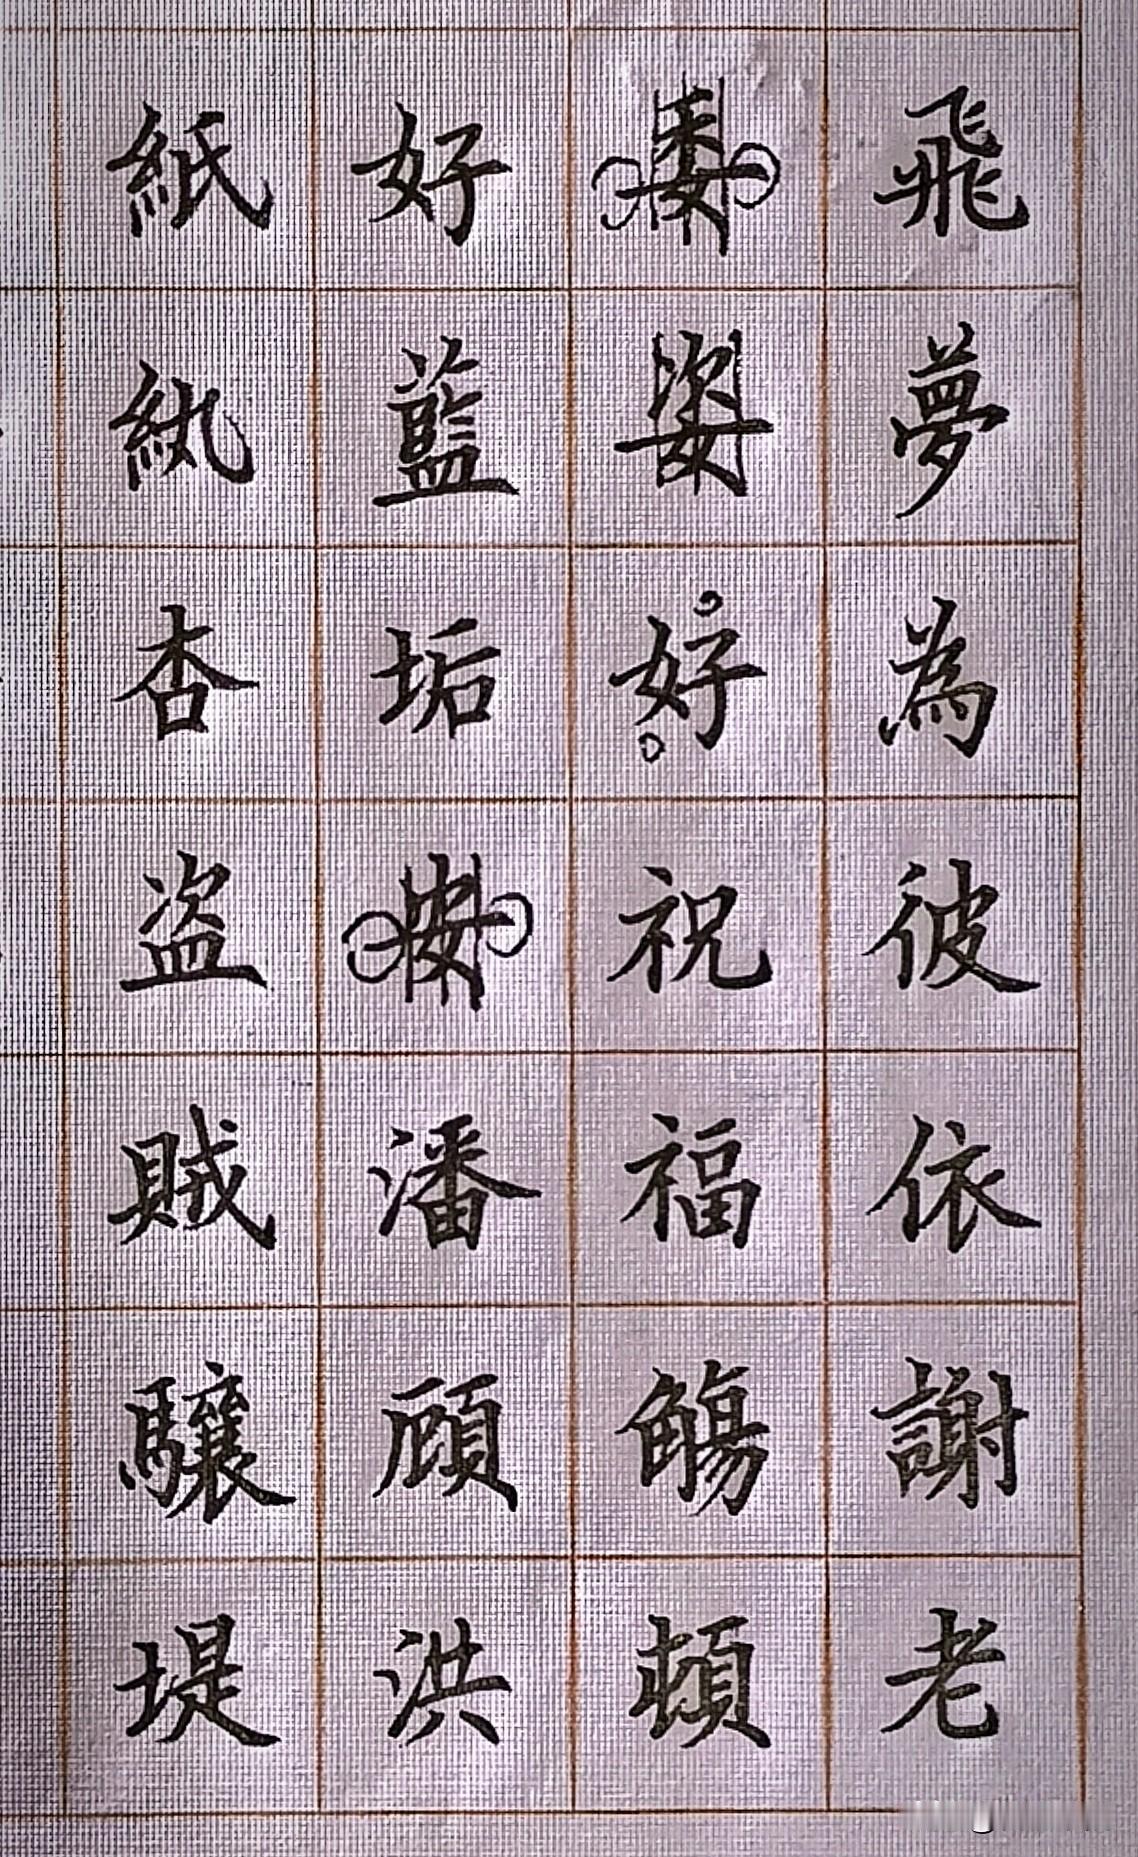 飛夢為彼依謝老
委姿好祝福觴頓
好藍垢安潘頋洪
紙紈杏盗賊驤堤